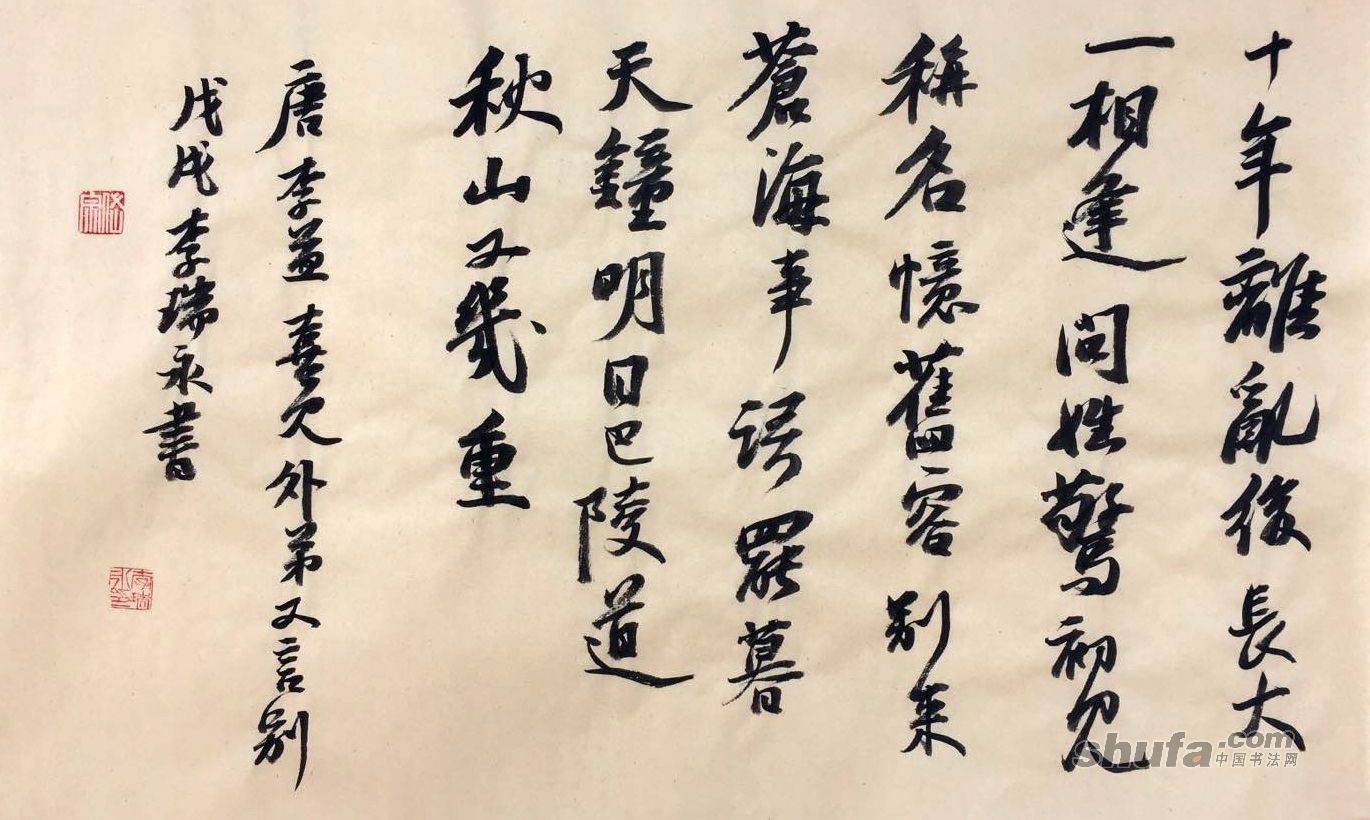 十年離亂後長大
一相逢問姓驚初見
稱名憶舊容别來
蒼海事語罷暮
天鐘明日巴陵道
秋山又幾重
唐李益喜見外弟又言别
戊戌李瑞永書
shufa.com
中国书法网